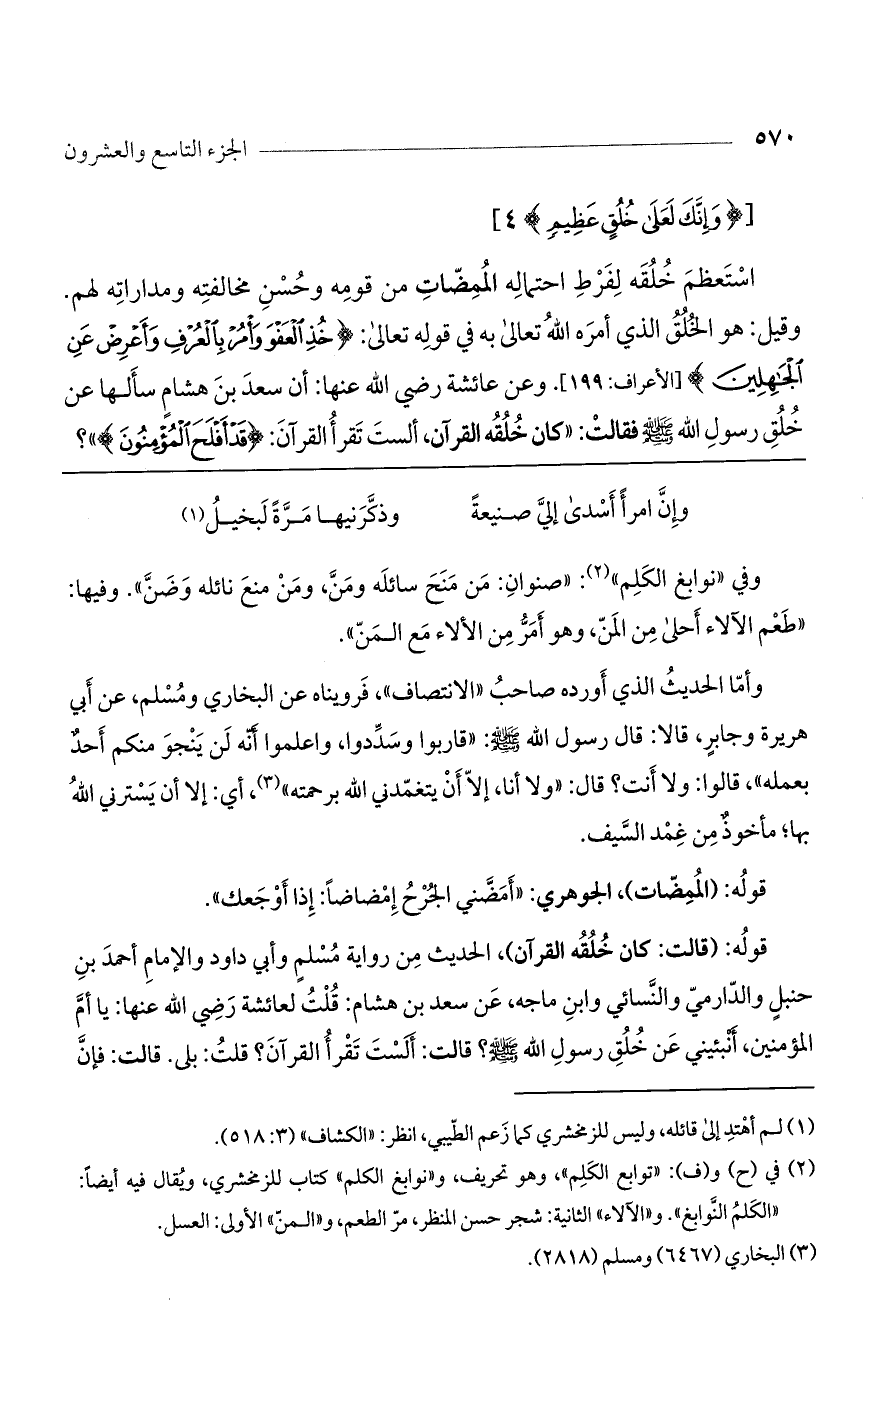 ٥٧٠ الجزء التاسع والعشرون
[﴿وَإِنَّكَ لَعَلَىٰ خُلُقٍ عَظِيمٍ﴾ ٤]
اسْتَعظمَ خُلُقَه لِفَرْطِ احتمالِه المُمِضّاتِ من قومِه وحُسْنِ مخالفتِه ومداراتِه لهم.
وقيل: هو الخُلُقُ الذي أمرَه اللهُ تعالىٰ به في قولِه تعالىٰ: ﴿خُذِ ٱلْعَفْوَ وَأْمُرْ بِٱلْعُرْفِ وَأَعْرِضْ عَنِ
ٱلْجَٰهِلِينَ﴾ [الأعراف: ١٩٩]. وعن عائشة رضي الله عنها: أن سعدَ بنَ هشامٍ سألها عن
خُلُقِ رسولِ الله ﷺ فقالتْ: «كان خُلُقُه القرآن، ألستَ تَقرأُ القرآنَ: ﴿قَدْ أَفْلَحَ ٱلْمُؤْمِنُونَ﴾»؟
وإنَّ امرأً أَسْدىٰ إليَّ صنيعةً وذكَّرَنيها مَرَّةً لَبخيلُ(١)
وفي «نوابغ الكَلِم»(٢): «صنوانِ: مَن مَنَحَ سائلَه ومَنَّ، ومَنْ منعَ نائله وَضَنَّ». وفيها:
«طَعْم الآلاء أَحلىٰ مِن المَنّ، وهو أَمَرُّ مِن الألاء مَع المَنّ».
وأمّا الحديثُ الذي أَورده صاحبُ «الانتصاف»، فَرويناه عن البخاري ومُسْلم، عن أَبي
هريرة وجابرٍ، قالا: قال رسول الله ﷺ: «قاربوا وسَدِّدوا، واعلموا أَنّه لَن يَنْجوَ منكم أَحدٌ
بعمله»، قالوا: ولا أَنت؟ قال: «ولا أنا، إلاّ أَنْ يتغمّدني الله برحمته»(٣)، أي: إلا أن يَسْترني اللهُ
بها؛ مأخوذٌ مِن غِمْد السَّيف.
قولُه: (المُمِضّات)، الجوهري: «أَمَضَّني الجُرْحُ إِمْضاضاً: إذا أَوْجَعك».
قولُه: (قالت: كان خُلُقُه القرآن)، الحديث مِن رواية مُسْلمٍ وأبي داود والإمامِ أحمدَ بنِ
حنبلٍ والدّارميّ والنَّسائي وابنِ ماجه، عَن سعد بن هشام: قُلْتُ لعائشة رَضِي الله عنها: يا أمَّ
المؤمنين، أَنْبئيني عَن خُلُقِ رسولِ الله ﷺ؟ قالت: أَلَسْتَ تَقْرأُ القرآنَ؟ قلتُ: بلى. قالت: فإنَّ
(١) لم أهْتدِ إلىٰ قائله، وليس للزمخشري كما زَعم الطّيبي، انظر: «الكشاف» (٣: ٥١٨).
(٢) في (ح) و(ف): «توابع الكَلِم»، وهو تحريف، و«نوابغ الكلم» كتاب للزمخشري، ويُقال فيه أيضاً:
«الكَلمُ النَّوابغ». و«الآلاء» الثانية: شجر حسن المنظر، مرّ الطعم، و«المنّ» الأولى: العسل.
(٣) البخاري (٦٤٦٧) ومسلم (٢٨١٨).